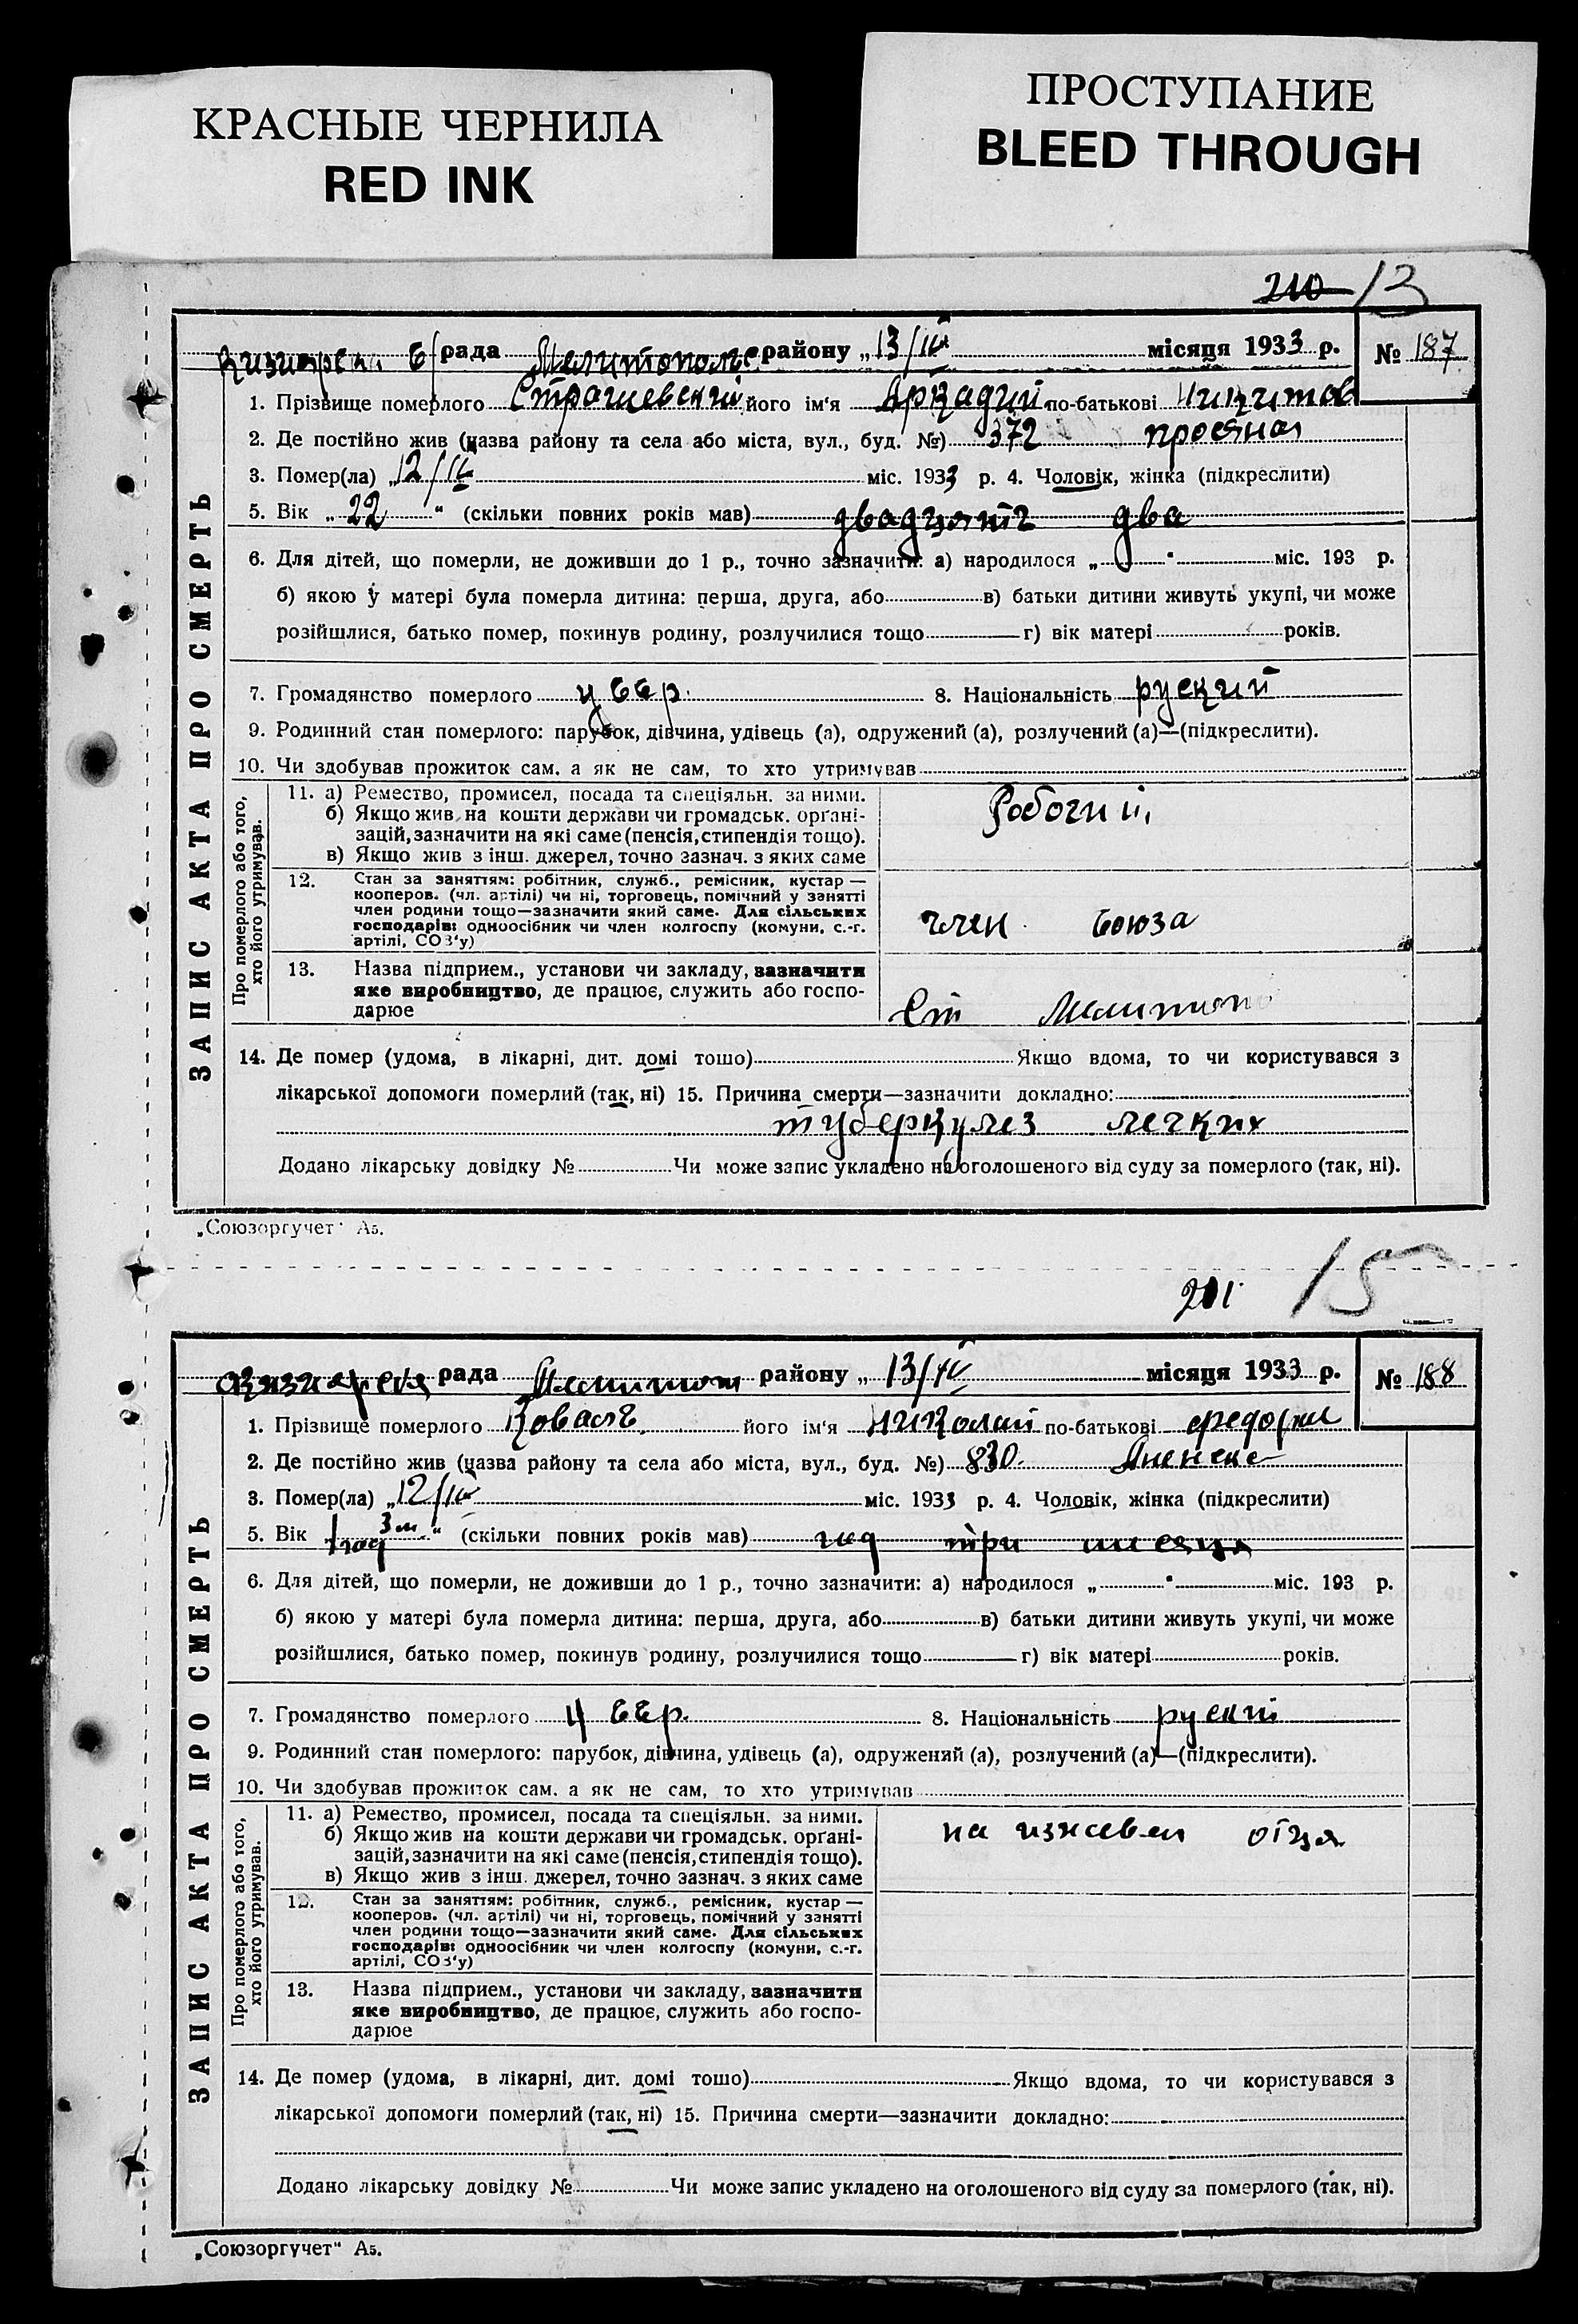 КРАСНЫЕ ЧЕРНИЛА
RED INK
ПРОСТУПАНИЕ
BLEED THROUGH
210 13
рада Мелитопольс району „13/IV місяця 1933 р. № 187
ЗАПИС АКТА ПРО СМЕРТЬ
1. Прізвище померлого його ім'я Аркадий по-батькові Никитов
2. Де постійно жив (назва району та села або міста, вул., буд. №) 372
3. Помер(ла) „12/IV міс. 1933 р. 4. Чоловік, жінка (підкреслити)
5. Вік „22“ (скільки повних років мав) двадцять два
6. Для дітей, що померли, не доживши до 1 р., точно зазначити: а) народилося „ “ міс. 193 р.
б) якою у матері була померла дитина: перша, друга, або в) батьки дитини живуть укупі, чи може
розійшлися, батько помер, покинув родину, розлучилися тощо г) вік матері років.
7. Громадянство померлого усср. 8. Національність руский
9. Родинний стан померлого: парубок, дівчина, удівець (а), одружений (а), розлучений (а)—(підкреслити).
10. Чи здобував прожиток сам, а як не сам, то хто утримував
Про померлого або того, хто його утримував.
11. а) Ремество, промисел, посада та спеціяльн. за ними.
б) Якщо жив на кошти держави чи громадськ. органі-
зацій, зазначити на які саме (пенсія, стипендія тощо).
в) Якщо жив з інш. джерел, точно зазнач. з яких саме
Робочий
12. Стан за заняттям: робітник, служб., ремісник, кустар —
кооперов. (чл. артілі) чи ні, торговець, помічний у занятті
член родини тощо—зазначити який саме. Для сільських
господарів: одноосібник чи член колгоспу (комуни, с.-г.
артілі, СОЗ'у)
член союза
13. Назва підприєм., установи чи закладу, зазначити
яке виробництво, де працює, служить або госпо-
дарює
Ст Мелитопо
14. Де помер (удома, в лікарні, дит. домі тощо) Якщо вдома, то чи користувався з
лікарської допомоги померлий (так, ні) 15. Причина смерти—зазначити докладно:
туберкулез легких
Додано лікарську довідку № Чи може запис укладено на оголошеного від суду за померлого (так, ні).
„Союзоргучет“ А5.
201 15
рада району „13/IV місяця 1933 р. № 188
ЗАПИС АКТА ПРО СМЕРТЬ
1. Прізвище померлого Коваль його ім'я Николай по-батькові
2. Де постійно жив (назва району та села або міста, вул., буд. №) 830.
3. Помер(ла) „12/IV міс. 1933 р. 4. Чоловік, жінка (підкреслити)
5. Вік 1 год 3 м.“ (скільки повних років мав) год три месяця
6. Для дітей, що померли, не доживши до 1 р., точно зазначити: а) народилося „ “ міс. 193 р.
б) якою у матері була померла дитина: перша, друга, або в) батьки дитини живуть укупі, чи може
розійшлися, батько помер, покинув родину, розлучилися тощо г) вік матері років.
7. Громадянство померлого усср. 8. Національність
9. Родинний стан померлого: парубок, дівчина, удівець (а), одружений (а), розлучений (а)—(підкреслити).
10. Чи здобував прожиток сам, а як не сам, то хто утримував
Про померлого або того, хто його утримував.
11. а) Ремество, промисел, посада та спеціяльн. за ними.
б) Якщо жив на кошти держави чи громадськ. органі-
зацій, зазначити на які саме (пенсія, стипендія тощо).
в) Якщо жив з інш. джерел, точно зазнач. з яких саме
на отця
12. Стан за заняттям: робітник, служб., ремісник, кустар —
кооперов. (чл. артілі) чи ні, торговець, помічний у занятті
член родини тощо—зазначити який саме. Для сільських
господарів: одноосібник чи член колгоспу (комуни, с.-г.
артілі, СОЗ'у)
13. Назва підприєм., установи чи закладу, зазначити
яке виробництво, де працює, служить або госпо-
дарює
14. Де помер (удома, в лікарні, дит. домі тощо) Якщо вдома, то чи користувався з
лікарської допомоги померлий (так, ні) 15. Причина смерти—зазначити докладно:
Додано лікарську довідку № Чи може запис укладено на оголошеного від суду за померлого (так, ні).
„Союзоргучет“ А5.